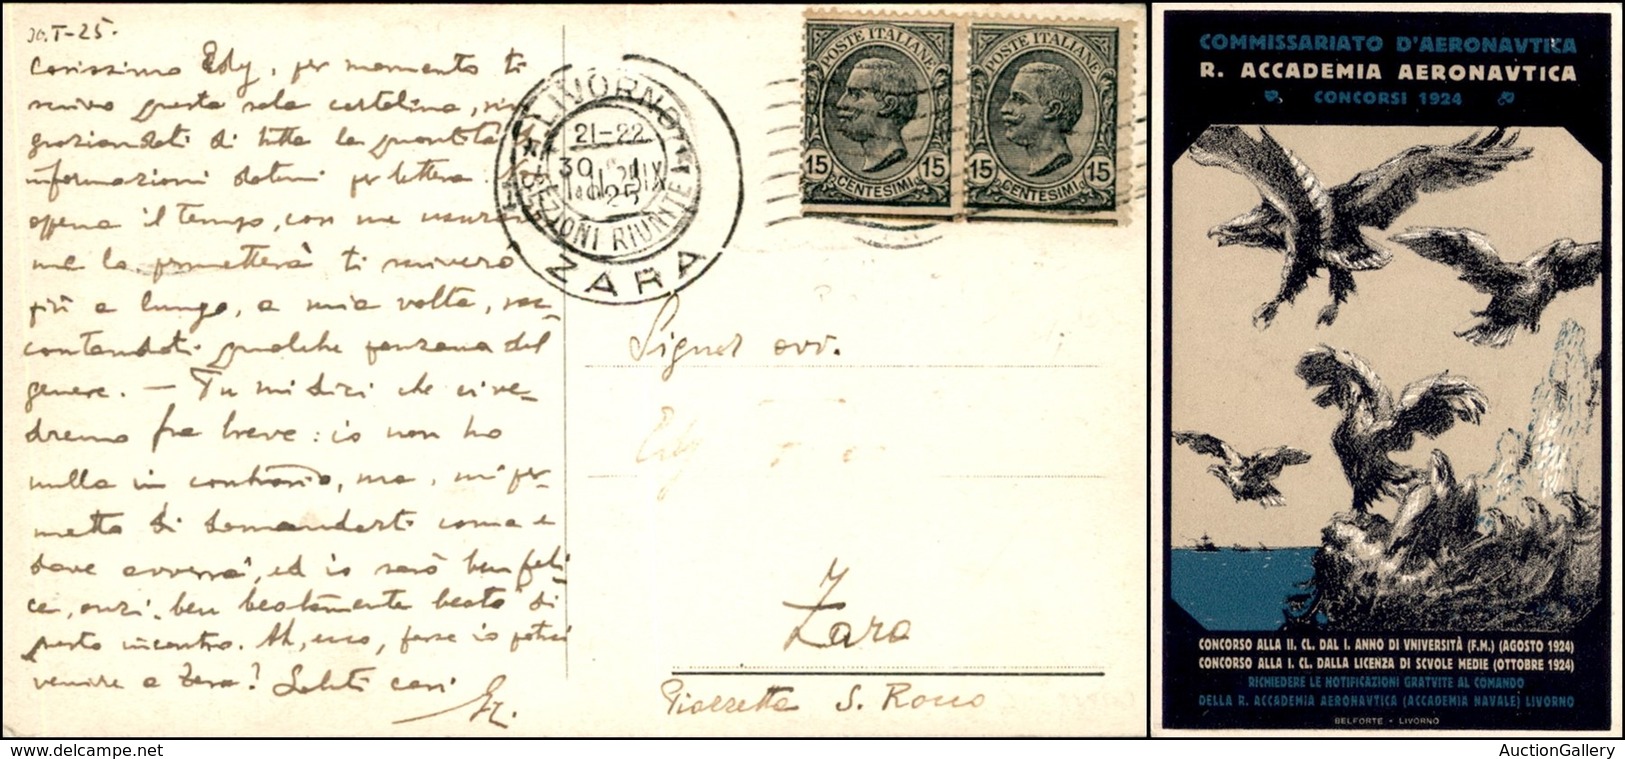 30.I-25.
Carissimo Edy, per momento ti
scrivo questa sola cartolina, rin
graziandoti di tutte le quantità di
informazioni datemi per lettera.
appena il tempo, con me usura
me lo permetterà ti scriverò
più a lungo, a mia volta, rac
contandoti qualche panzana del
genere. — Tu mi dici che ci ve-
dremo fra breve: io non ho
nulla in contrario, ma, mi per-
metto di domandarti come e
dove avverrà, ed io sarò ben feli
ce, anzi, ben beatamente beato di
questo incontro. Ah, ecco, forse io potrei
venire a Zara? Saluti cari
LIVORNO
21-22
30 1
1925
SEZIONI RIUNITE
ZARA
POSTE ITALIANE
15 15
CENTESIMI
POSTE ITALIANE
15 15
CENTESIMI
Signor
Edy
Zara
Piazzetta S. Rocco
COMMISSARIATO D'AERONAVTICA
R. ACCADEMIA AERONAVTICA
CONCORSI 1924
CONCORSO ALLA II. CL. DAL I. ANNO DI VNIVERSITÀ (F.M.) (AGOSTO 1924)
CONCORSO ALLA I. CL. DALLA LICENZA DI SCVOLE MEDIE (OTTOBRE 1924)
RICHIEDERE LE NOTIFICAZIONI GRATVITE AL COMANDO
DELLA R. ACCADEMIA AERONAVTICA (ACCADEMIA NAVALE) LIVORNO
BELFORTE - LIVORNO
AuctionGallery